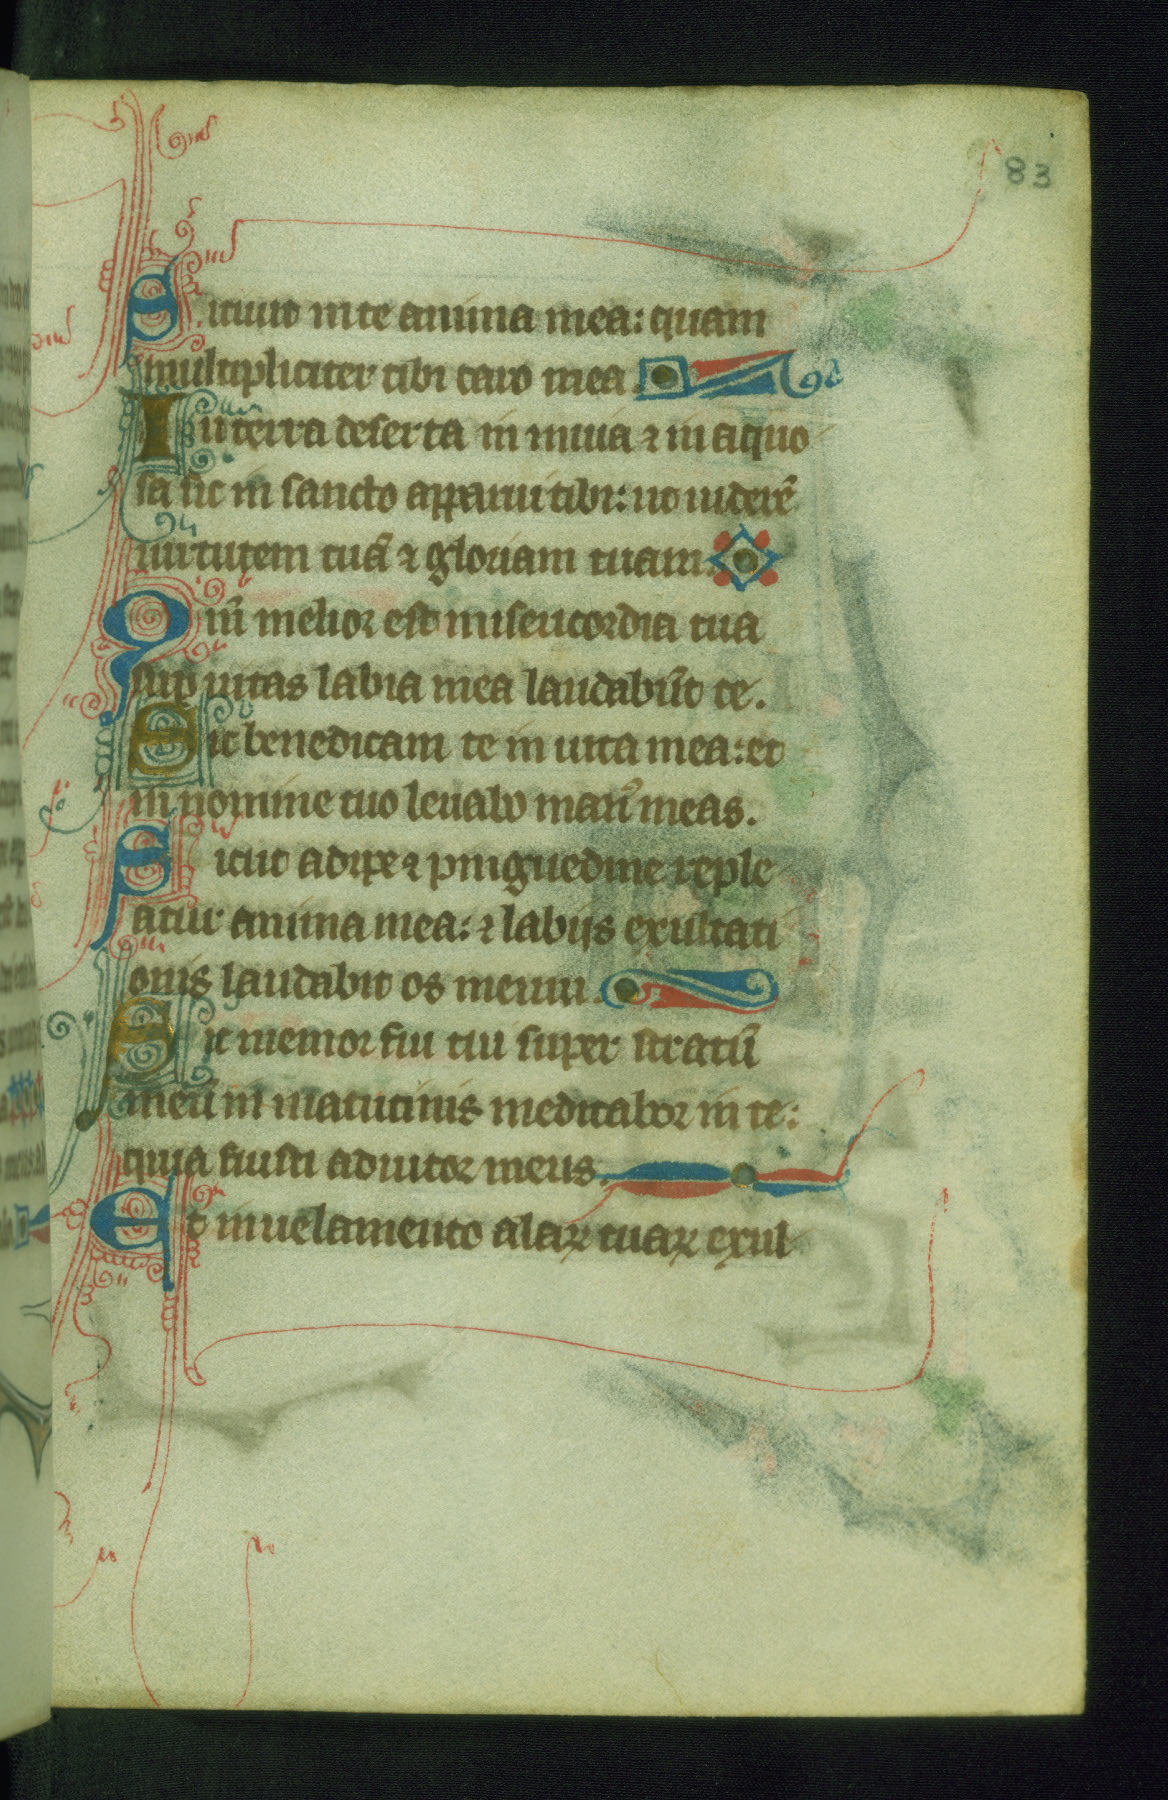 83
Sitiuit in te anima mea: quam
multipliciter tibi caro mea.
In terra deserta in inuia ⁊ in aquo
sa sic in sancto apparui tibi: ut uiderē
uirtutem tuā ⁊ gloriam tuam.
Qm̄ melior est misericordia tua
sup uitas labia mea laudabūt te.
Sic benedicam te in uita mea: et
in nomine tuo leuabo man᷒ meas.
Sicut adipe ⁊ pinguedine reple
atur anima mea: ⁊ labijs exultati
onis laudabit os meum.
Sic memor fui tui super stratū
meū in matutinis meditabor in te:
quia fuisti adiutor meus.
Et in uelamento alaꝝ tuaꝝ exul